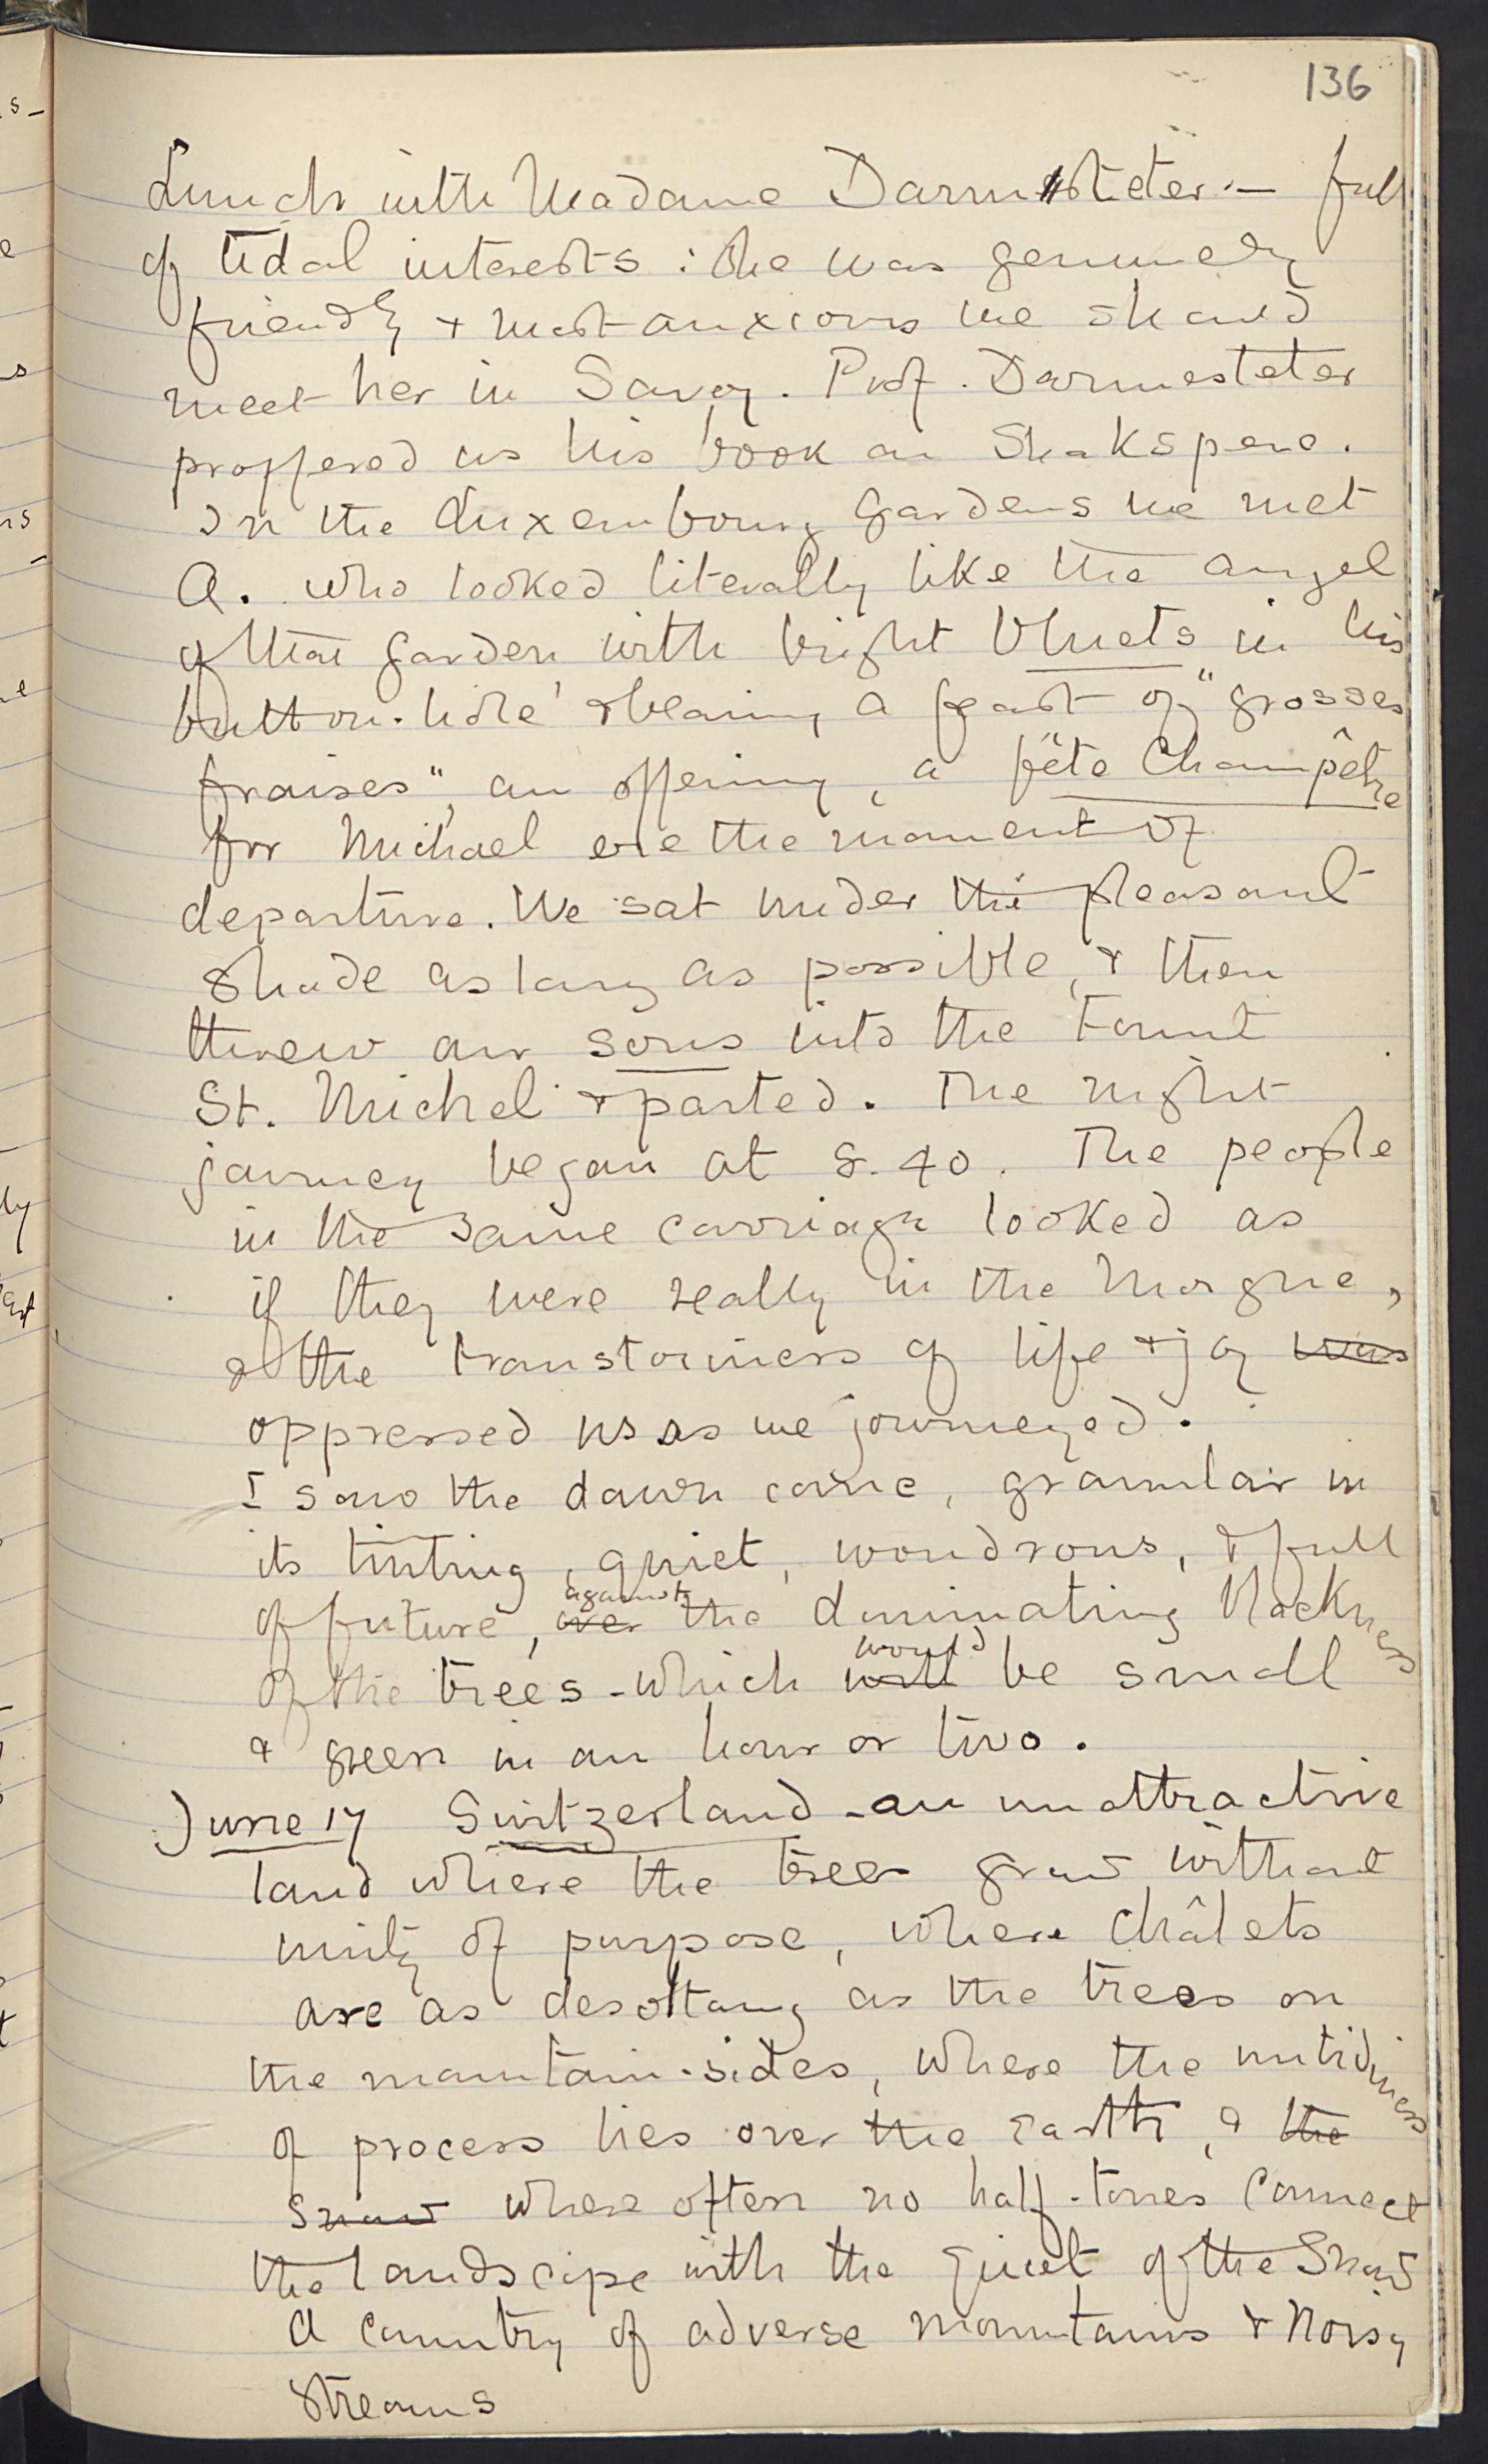 136
Lunch with Madame Darmesteter – full
of tidal interests : she was genuinely
friendly & most anxious we should
meet her in Savoy. Prof. Darmesteter
proffered us his book on Shakspere.
In the Luxembourg Gardens we met
A. who looked literally like the angel
of the garden with bright bluets in his
button-hole & bearing a feast of "grosses
fraises", an offering, a fête Champêtre
for Michael ere the moment of
departure. We sat under the pleasant
shade as long as possible, & then
threw our sous into the Fount
St. Michel & parted. The night
journey began at 8.40. The people
in the same carriage looked as
if they were really in the Morgue,
& the transtoriness of life & joy was
oppressed us as we journeyed.
I saw the dawn come, granular in
its tinting, quiet, wondrous, & full
of future, over against the dominating blackness
of the trees – which will would be small
& green in an hour or two.
June 17 Switzerland – an unattractive
land where the trees grow without
unity of purpose, where châlets
are as desoltary as the trees on
the mountain-sides, where the untidiness
of process lies over the earth, & the
snow where often no half-tones connect
the landscape with the quiet of the Snow
A Country of adverse mountains & noisy
streams